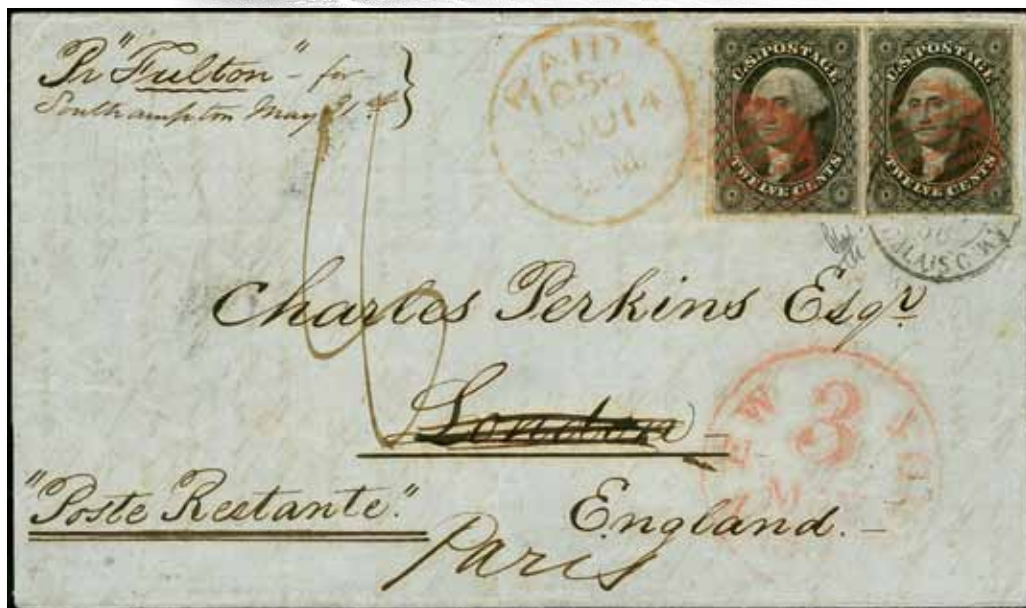 Pr "Fulton" - for
Southampton May 31st
PAID
1858
JU 14
U.S. POSTAGE
TWELVE CENTS
U.S. POSTAGE
TWELVE CENTS
CALAIS
Charles Perkins Esqr
London
NEW YO
3
"Poste Restante."
England.
Paris